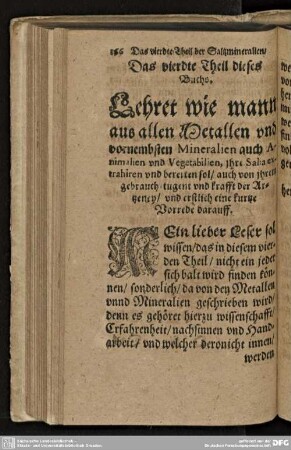 156 Das vierdte Theil der Saltzmineralien/
Das vierdte Theil dieses
Buchs.
Lehret wie mann
aus allen Metallen vnd
vornembsten Mineralien auch A-
nimalien vnd Vegetabilien, jhre Salia ex-
trahiren vnd bereiten sol/ auch von jhrem
gebrauch tugent vnd krafft der Ar-
tzeney/ vnd erstlich eine kurtze
Vorrede darauff.
MEin lieber Leser sol
wissen/ das in diesem vier-
den Theil/ nicht ein jeder
sich balt wird finden kön-
nen/ sonderlich/ da von den Metallen
vnnd Mineralien geschrieben wird/
denn es gehöret hierzu wissenschafft/
Erfahrenheit/ nachsinnen vnd Hand-
arbeit/ vnd welcher deronicht innen/
werden